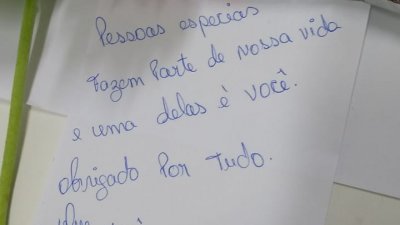 Pessoas especias
fazem parte de nossa vida
e uma delas é você.
obrigado por tudo.